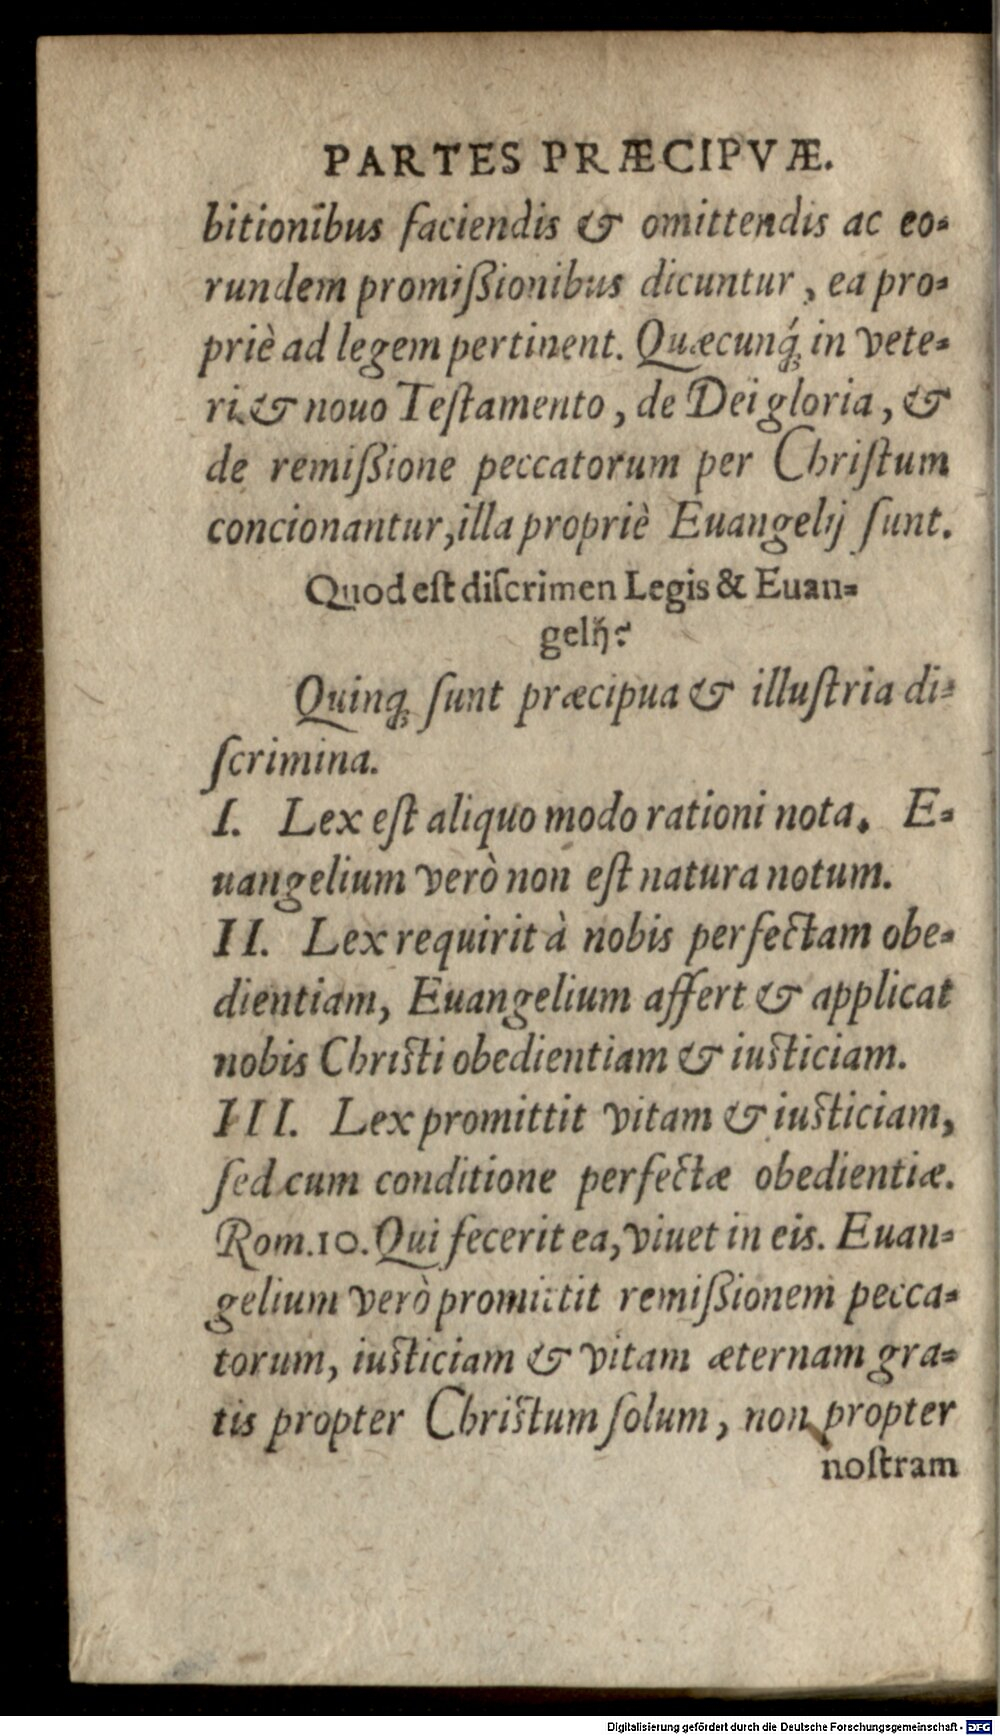 PARTES PRÆCIPVÆ.
bitionibus faciendis & omittendis ac eo⸗
rundem promiſsionibus dicuntur, ea pro⸗
priè ad legem pertinent. Quæcunq́; in vete⸗
ri & nouo Teſtamento, de Dei gloria, &
de remiſsione peccatorum per Chriſtum
concionantur, illa propriè Euangelij ſunt.
Quod eſt diſcrimen Legis & Euan⸗
gelij?
Quinq; ſunt præcipua & illuſtria di⸗
ſcrimina.
I. Lex eſt aliquo modo rationi nota. E⸗
uangelium verò non eſt natura notum.
II. Lex requirit à nobis perfectam obe⸗
dientiam, Euangelium affert & applicat
nobis Chriſti obedientiam & iuſticiam.
III. Lex promittit vitam & iuſticiam,
ſed cum conditione perfectæ obedientiæ.
Rom.10. Qui fecerit ea, viuet in eis. Euan⸗
gelium verò promittit remiſsionem pecca⸗
torum, iuſticiam & vitam æternam gra⸗
tis propter Chriſtum ſolum, non propter
noſtram
Digitalisierung gefördert durch die Deutsche Forschungsgemeinschaft - DFG